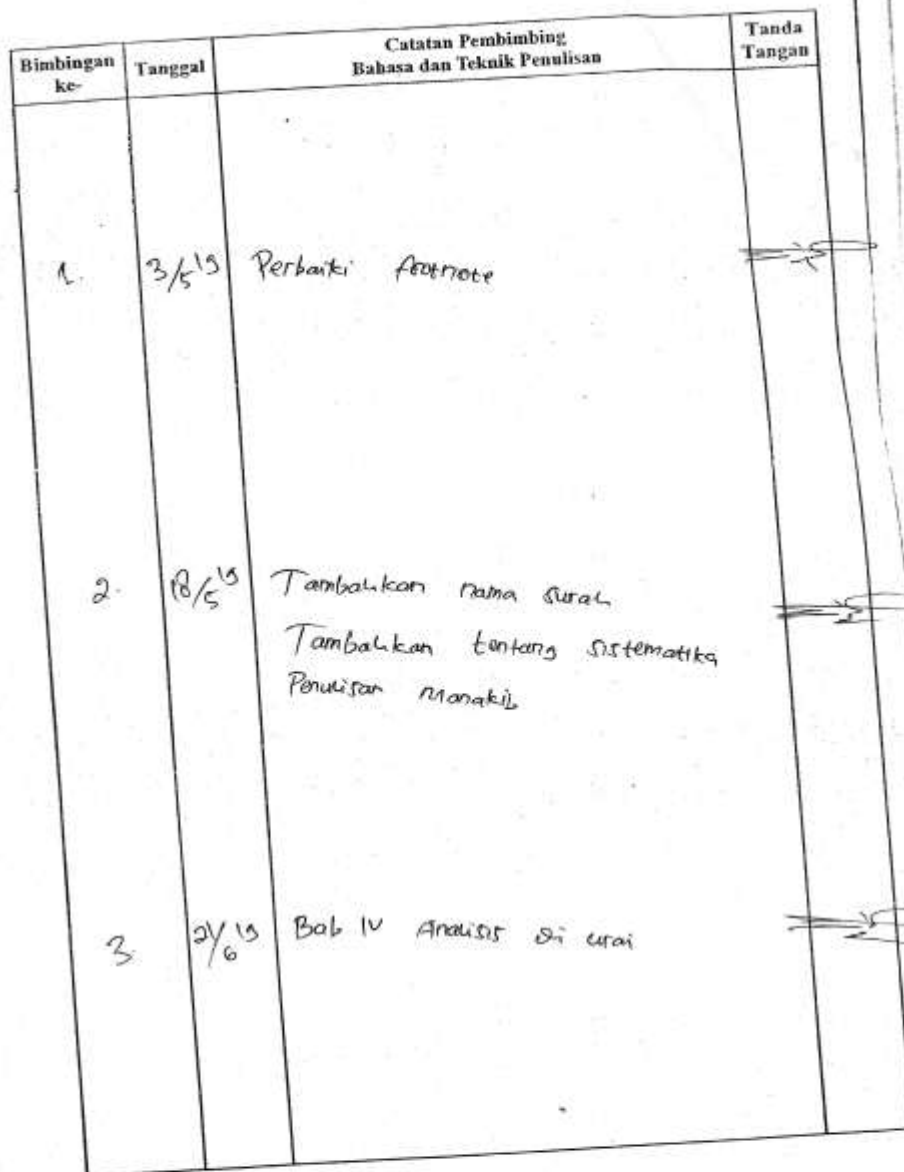 Bimbingan ke-
Tanggal
Catatan Pembimbing
Bahasa dan Teknik Penulisan
Tanda Tangan
1. 3/5 19 Perbaiki footnote
2. 18/5 19 Tambahkan nama surah
Tambahkan tentang sistematika
Penulisan Manakib
3. 21/6 19 Bab IV Analisis di urai